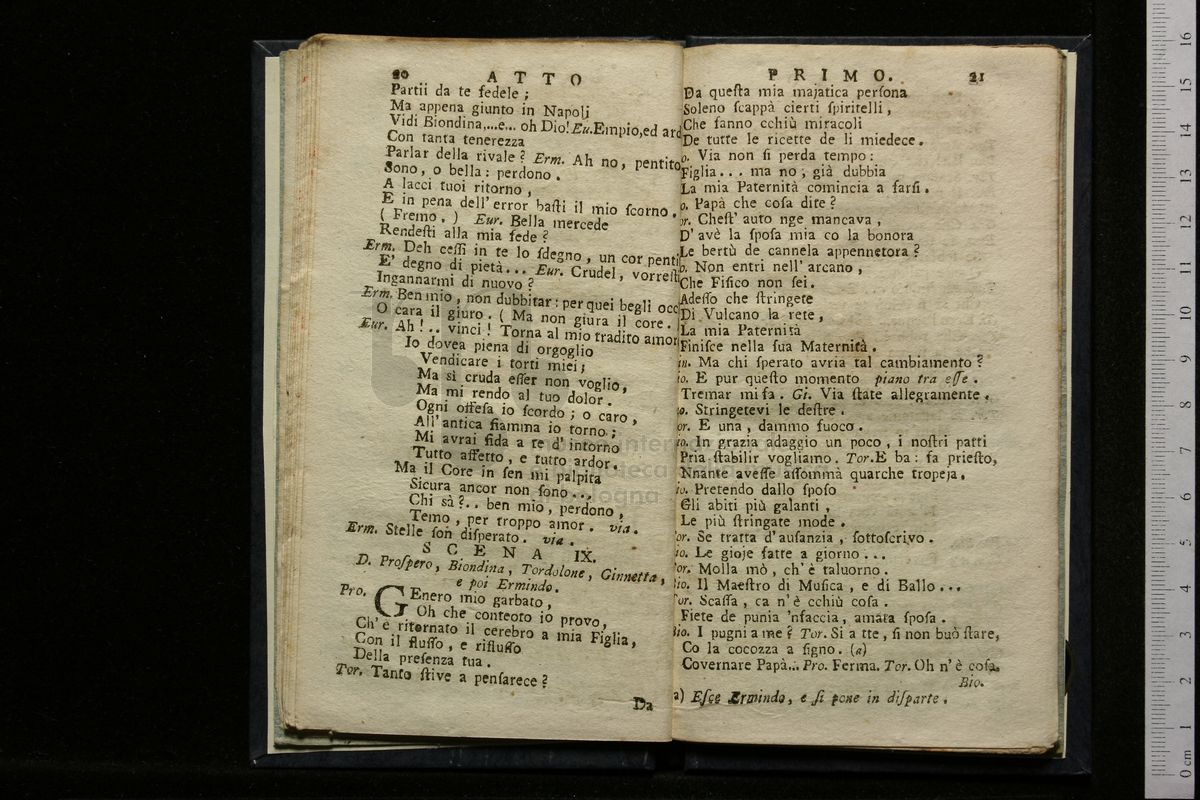 20 ATTO
Partii da te fedele ;
Ma appena giunto in Napoli
Vidi Biondina,...e... oh Dio! Eu. Empio, ed ard
Con tanta tenerezza
Parlar della rivale ? Erm. Ah no, pentito
Sono, o bella : perdono .
A lacci tuoi ritorno ,
E in pena dell' error baſti il mio ſcorno .
( Fremo . ) Eur. Bella mercede
Rendeſti alla mia fede ?
Erm. Deh ceſſi in te lo ſdegno , un cor penti
E' degno di pietà... Eur. Crudel, vorreſti
Ingannarmi di nuovo ?
Erm. Ben mio , non dubbitar : per quei begli occ
O cara il giuro . ( Ma non giura il core .
Eur. Ah ! .. vinci ! Torna al mio tradito amor
Io dovea piena di orgoglio
Vendicare i torti miei ;
Ma sì cruda eſſer non voglio,
Ma mi rendo al tuo dolor .
Ogni offeſa io ſcordo ; o caro ,
All' antica fiamma io torno ;
Mi avrai fida a te d' intorno
Tutto affetto , e tutto ardor .
Ma il Core in ſen mi palpita
Sicura ancor non ſono ...
Chi sà ?.. ben mio , perdono ,
Temo , per troppo amor . via .
Erm. Stelle ſon diſperato . via .
SCENA IX.
D. Proſpero , Biondina , Tordolone , Ginnetta ,
e poi Ermindo .
Pro. GEnero mio garbato ,
Oh che conteoto io provo ,
Ch' è ritornato il cerebro a mia Figlia ,
Con il fluſſo , e rifluſſo
Della preſenza tua .
Tor. Tanto ſtive a penſarece ?
Da
PRIMO. 21
Da queſta mia majatica perſona
Soleno ſcappà cierti ſpiritelli ,
Che fanno cchiù miracoli
De tutte le ricette de li miedece .
o. Via non ſi perda tempo :
Figlia . . . ma no ; già dubbia
La mia Paternità comincia a farſi .
o. Papà che coſa dite ?
or. Cheſt' auto nge mancava ,
D' avè la ſpoſa mia co la bonora
Le bertù de cannela appennetora ?
o. Non entri nell' arcano ,
Che Fiſico non ſei .
Adeſſo che ſtringete
Di Vulcano la rete ,
La mia Paternità
Finiſce nella ſua Maternità .
in. Ma chi ſperato avria tal cambiamento ?
io. E pur queſto momento piano tra eſſe .
Tremar mi fa . Gi. Via ſtate allegramente .
o. Stringetevi le deſtre .
or. E una , dammo fuoco .
io. In grazia adaggio un poco , i noſtri patti
Pria ſtabilir vogliamo . Tor. E ba : fa prieſto,
Nnante aveſſe aſſommà quarche tropeja .
io. Pretendo dallo ſpoſo
Gli abiti più galanti ,
Le più ſtringate mode .
or. Se tratta d' auſanzia , ſottoſcrivo .
io. Le gioje fatte a giorno . . .
or. Molla mò , ch' è taluorno .
Bio. Il Maeſtro di Muſica , e di Ballo . . .
Tor. Scaſſa , ca n' è cchiù coſa .
Fiete de punia 'nfaccia , amara ſpoſa .
Bio. I pugni a me ? Tor. Si a tte , ſi non buò ſtare,
Co la cocozza a ſigno . (a)
Covernare Papà... Pro. Ferma. Tor. Oh n' è coſa.
Bio.
a) Eſce Ermindo , e ſi pone in diſparte .
16
15
14
13
12
11
10
9
8
7
6
5
4
3
2
1
0 cm